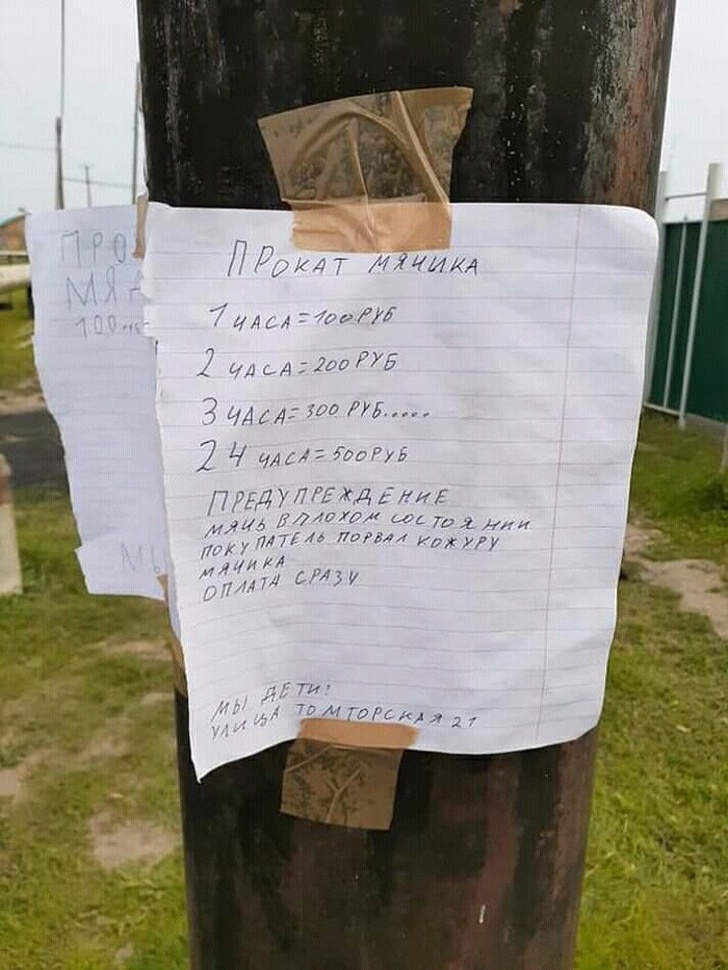 ПРО
МЯ
100
ПРОКАТ МЯЧИКА
1 ЧАСА=100РУБ
2 ЧАСА=200РУБ
3 ЧАСА=300 РУБ.....
24 ЧАСА=500РУБ
ПРЕДУПРЕЖДЕНИЕ
МЯЧЬ В ПЛОХОМ СОСТОЯНИИ
ПОКУПАТЕЛЬ ПОРВАЛ КОЖУРУ
МЯЧИКА
ОПЛАТА СРАЗУ
МЫ
МЫ ДЕТИ!
УЛИЦА ТОМТОРСКАЯ 21